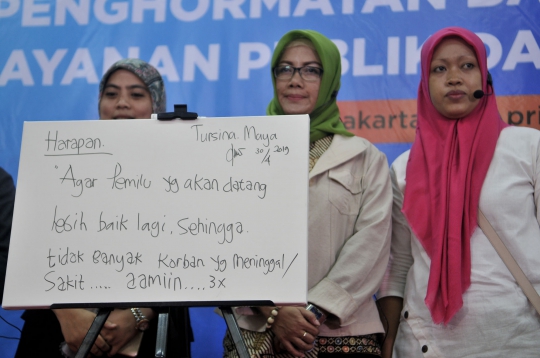 PENGHORMATAN DA
AYANAN PUBLIK DA
akarta
pri
Harapan.
Tursina Maya
30/4 2019
"Agar Pemilu yg akan datang
lebih baik lagi, Sehingga
tidak Banyak korban yg meninggal/
Sakit..... aamiin.... 3x